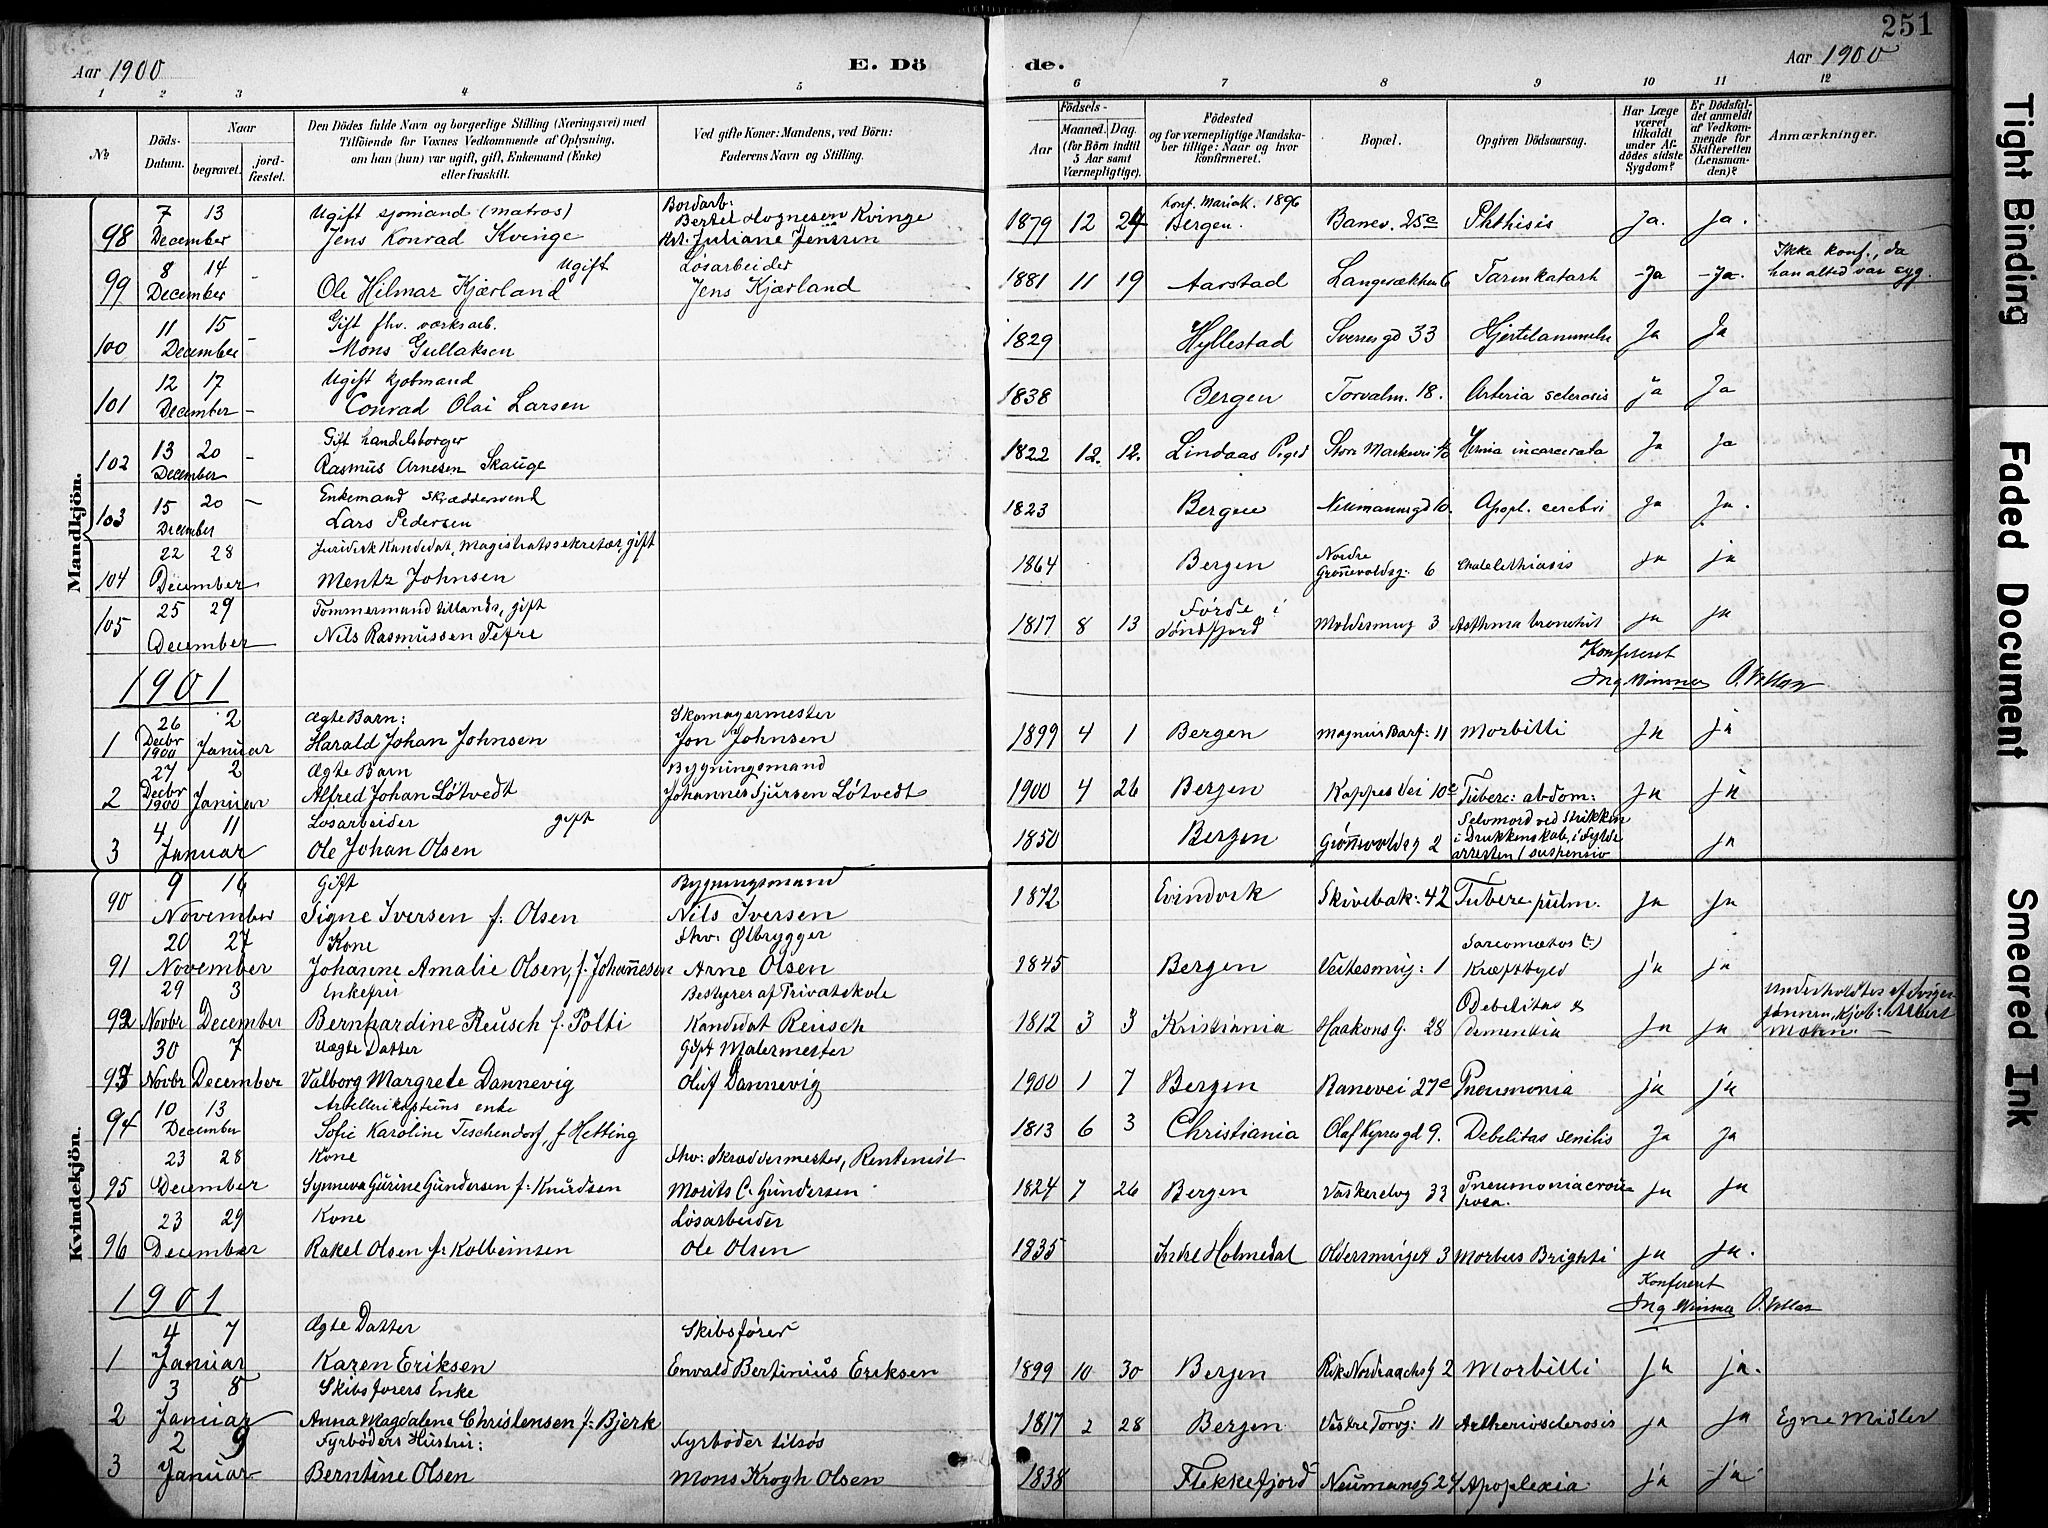 251
Aar 1900 E. Dö
de. Aar 1900
1 2 3 4 5 6 7 8 9 10 11 12
No
Döds-
Datum.
Naar
begravet.
jord-
fæstet.
Den Dödes fulde Navn og borgerlige Stilling (Næringsvei) med
Tilföiende for Voxnes Vedkommende af Oplysning,
om han (hun) var ugift, gift, Enkemand (Enke)
eller fraskilt.
Ved gifte Koner: Mandens, ved Börn:
Faderens Navn og Stilling.
Födsels-
Aar
Maaned. Dag.
(for Börn indtil
5 Aar samt
Værnepligtige).
Födested
og for værnepligtige Mandska-
ber tillige: Naar og hvor
konfirmeret.
Bopæl.
Opgiven Dödsaarsag.
Har Læge
været
tilkaldt
under Af-
dödes sidste
Sygdom?
Er Dödsfal-
det anmeldt
af Vedkom-
mende for
Skifteretten
(Lensman-
den)?
Anmærkninger.
Mandkjön.
7 13 Ugift sjømand (matros) Bordarb: Konf. Mariak. 1896
98 December Jens Konrad Kvinge Bertel Hognesen Kvinge 1879 12 24 Bergen. Banev. 25c Phthisis Ja. ja.
Juliane Jenssen
8 14 - Ugift Løsarbeider Ikke konf., da
99 December Ole Hilmar Kjærland Jens Kjærland 1881 11 19 Aarstad 6 Tarmkatarh - Ja - Ja. han altid var syg.
11 15 - Gift fhv. værksarb.
100 December Mons Gullaksen 1829 Hyllestad Sverresgd 33 Ja Ja
12 17 Ugift kjøbmand
101 December - Conrad Olai Larsen 1838 Bergen Torvalm. 18. Arteria sclerosis ja Ja
13 20 - Gift handelsborger
102 December Rasmus Arnesen Skauge 1822 12. 12. Lindaas Pgd Store Hernia incarcerata Ja ja
15 20 - Enkemand skræddersvend
103 December Lars Pedersen 1823 Bergen Neumannsgd 10. Apopl. cerebri Ja Ja.
22 28 Juridisk Kandidat, Magistratssekretær, gift
104 December Mentz Johnsen 1864 Bergen Nordre
6 ja ja
25 29 Tømmermand tillands, gift
105 December Nils Rasmussen Tefre 1817 8 13 Førde i
Søndfjord 3 Asthma bronchit ja ja
Konfereret
1901
26 2 Ægte Barn: Skomagermester
1 Decbr 1900 Januar Harald Johan Johnsen Jon Johnsen 1899 4 1 Bergen Magnus Barf: 11 Morbilli Ja ja
27 2 Ægte Barn Bygningsmand
2 Decbr 1900 Januar Alfred Johan Løtvedt Johannes Løtvedt 1900 4 26 Bergen Kappes Vei 10c Tuberc: abdom: Ja ja
4 11 Løsarbeider gift Selvmord ved
3 Januar Ole Johan Olsen 1850 Bergen 2 i Drukkenskab, i
arresten ja
Kvindekjön.
9 16 Gift Bygningsmand
90 November Signe Iversen f: Olsen Nils Iversen 1872 Evindvik Skivebak: 42 Tuberc pulm. Ja Ja
20 27 Kone Fhv: Ølbrygger Sarcomatos (?)
91 November Johanne Amalie Olsen, f. Johannesen Arne Olsen 1845 Bergen 1 ja ja
29 3 Enkefru Bestyrer af Privatskole Debilitas &
92 Novbr December Bernhardine Reusch f. Polti Kandidat Reusch 1812 3 3 Kristiania Haakonsg. 28 dementia Ja Ja
30 7 Uægte Datter Gift Malermester
93 Novbr December Valborg Margrete Dannevig Oluf Dannevig 1900 1 7 Bergen Banevei 27c Pneumonia ja ja
10 13 enke
94 December Sofie Karoline Tischendorf, f Hetting 1813 6 3 Christiania Olaf Kyrresgd 9. Debilitas senilis Ja Ja
23 28 Kone Fhv: Skræddermester, Rentenist
95 December Synneva Gurine Gundersen f: Knudsen Morits C. Gundersen 1824 7 26 Bergen 33 Pneumonia crou-
posa. ja ja
23 29 Kone Løsarbeider
96 December Rakel Olsen f: Kolbeinsen Ole Olsen 1835 Indre Holmedal 3 Morbus Brighti ja ja.
Konfereret
1901
4 7 Ægte Datter Skibsfører
1 Januar Karen Eriksen Enwald Bertinius Eriksen 1899 10 30 Bergen Rik. Nordraachs G 2 Morbilli ja ja.
3 8 Skibsførers Enke
2 Januar Anna Magdalena Christensen f: Bjerk 1817 2 28 Bergen Vestre Torvg: 11 ja ja Egne Midler
2 9 Fyrbøders Hustru: Fyrbøder tilsøs
3 Januar Berntine Olsen Mons Krogh Olsen 1838 Flekkefjord Neumans G 24 Apoplexia ja ja
Tight Binding
Faded Document
Smeared Ink